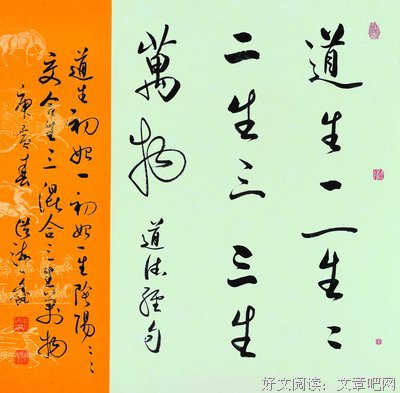 道生一一生二
二生三三生
萬物
道德經句
道生初始一初始一生陰陽二二
交合生三混合三生萬物
庚寅春
好文阅读：文章吧网